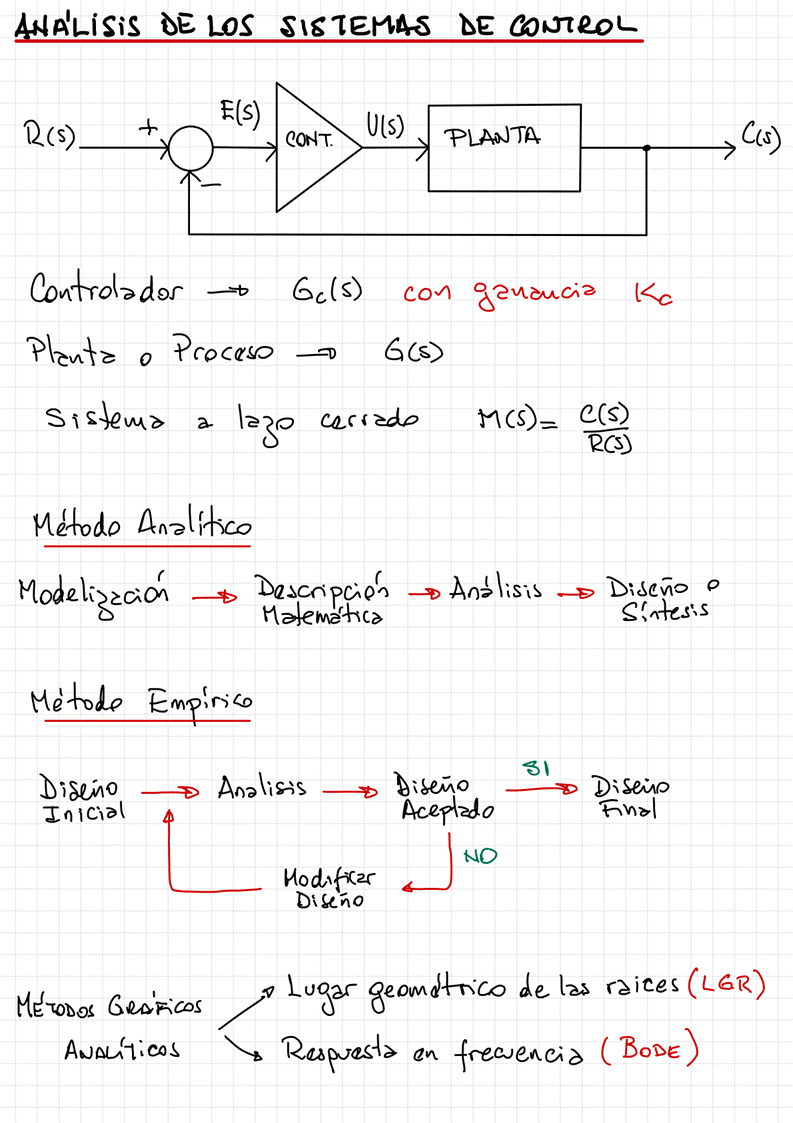 ANÁLISIS DE LOS SISTEMAS DE CONTROL
R(s) + E(s) CONT. U(s) PLANTA C(s)
−
Controlador → Gc(s) con ganancia Kc
Planta o Proceso → G(s)
Sistema a lazo cerrado M(s) = C(s)/R(s)
Método Analítico
Modelización → Descripción → Análisis → Diseño o
Matemática Síntesis
Método Empírico
SI
Diseño → Analisis → Diseño → Diseño
Inicial Aceptado Final
NO
Modificar
Diseño
Lugar geométrico de las raices (LGR)
MÉTODOS GRÁFICOS
ANALÍTICOS
Respuesta en frecuencia (BODE)